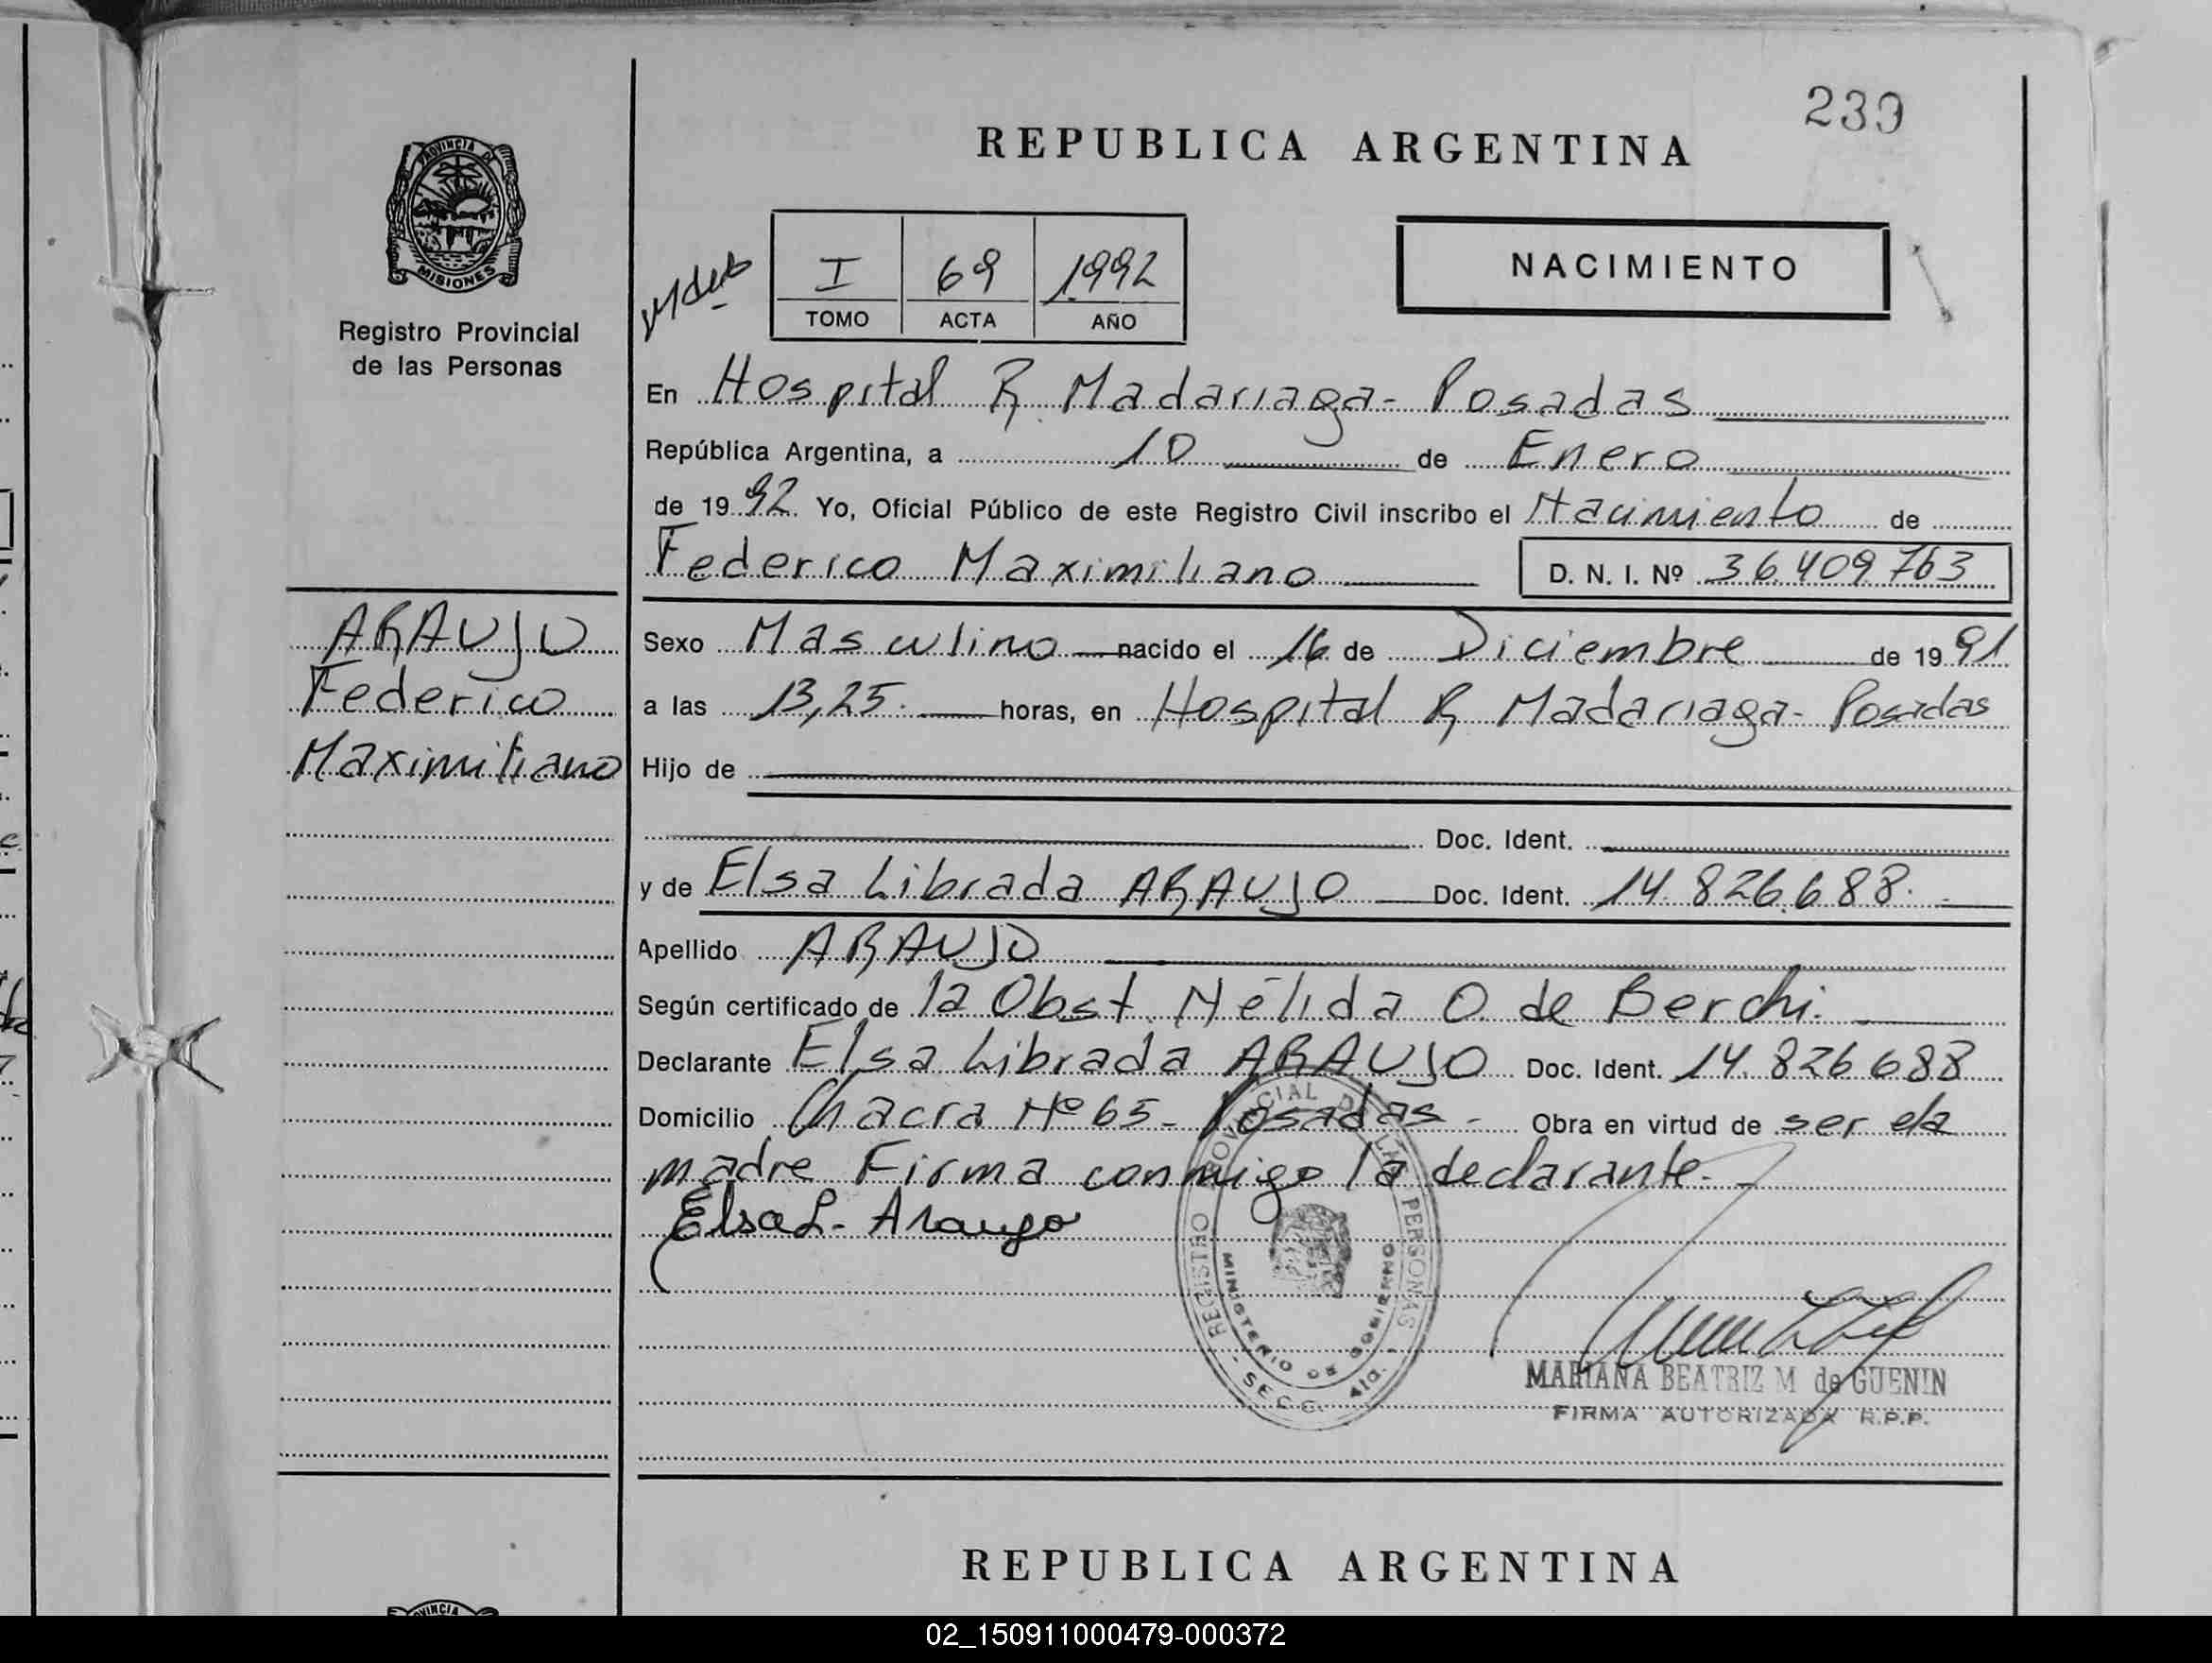 239
REPUBLICA ARGENTINA
PROVINCIA DE
MISIONES
Registro Provincial
de las Personas
I 69 1992
TOMO ACTA AÑO
NACIMIENTO
En Hospital R. Madariaga - Posadas
República Argentina, a 10 de Enero
de 1992. Yo, Oficial Público de este Registro Civil inscribo el Nacimiento de
Federico Maximiliano D. N. I. Nº 36.409.763
ARAUJO
Federico
Maximiliano
Sexo Masculino nacido el 16 de Diciembre de 1991
a las 13,25. horas, en Hospital R. Madariaga - Posadas
Hijo de
Doc. Ident.
y de Elsa Librada ARAUJO Doc. Ident. 14.826.688.
Apellido ARAUJO
Según certificado de la Obst. Nélida O. de Berchi.
Declarante Elsa Librada ARAUJO Doc. Ident. 14.826.688
Domicilio Chacra Nº 65 - Posadas - Obra en virtud de ser ela
madre Firma conmigo la declarante. -
Elsa L. Araujo
REGISTRO PROVINCIAL DE LAS PERSONAS
MINISTERIO DE GOBIERNO
- SECC. 4ta. -
MARIANA BEATRIZ M de GUENIN
FIRMA AUTORIZADA R.P.P.
REPUBLICA ARGENTINA
02_150911000479-000372